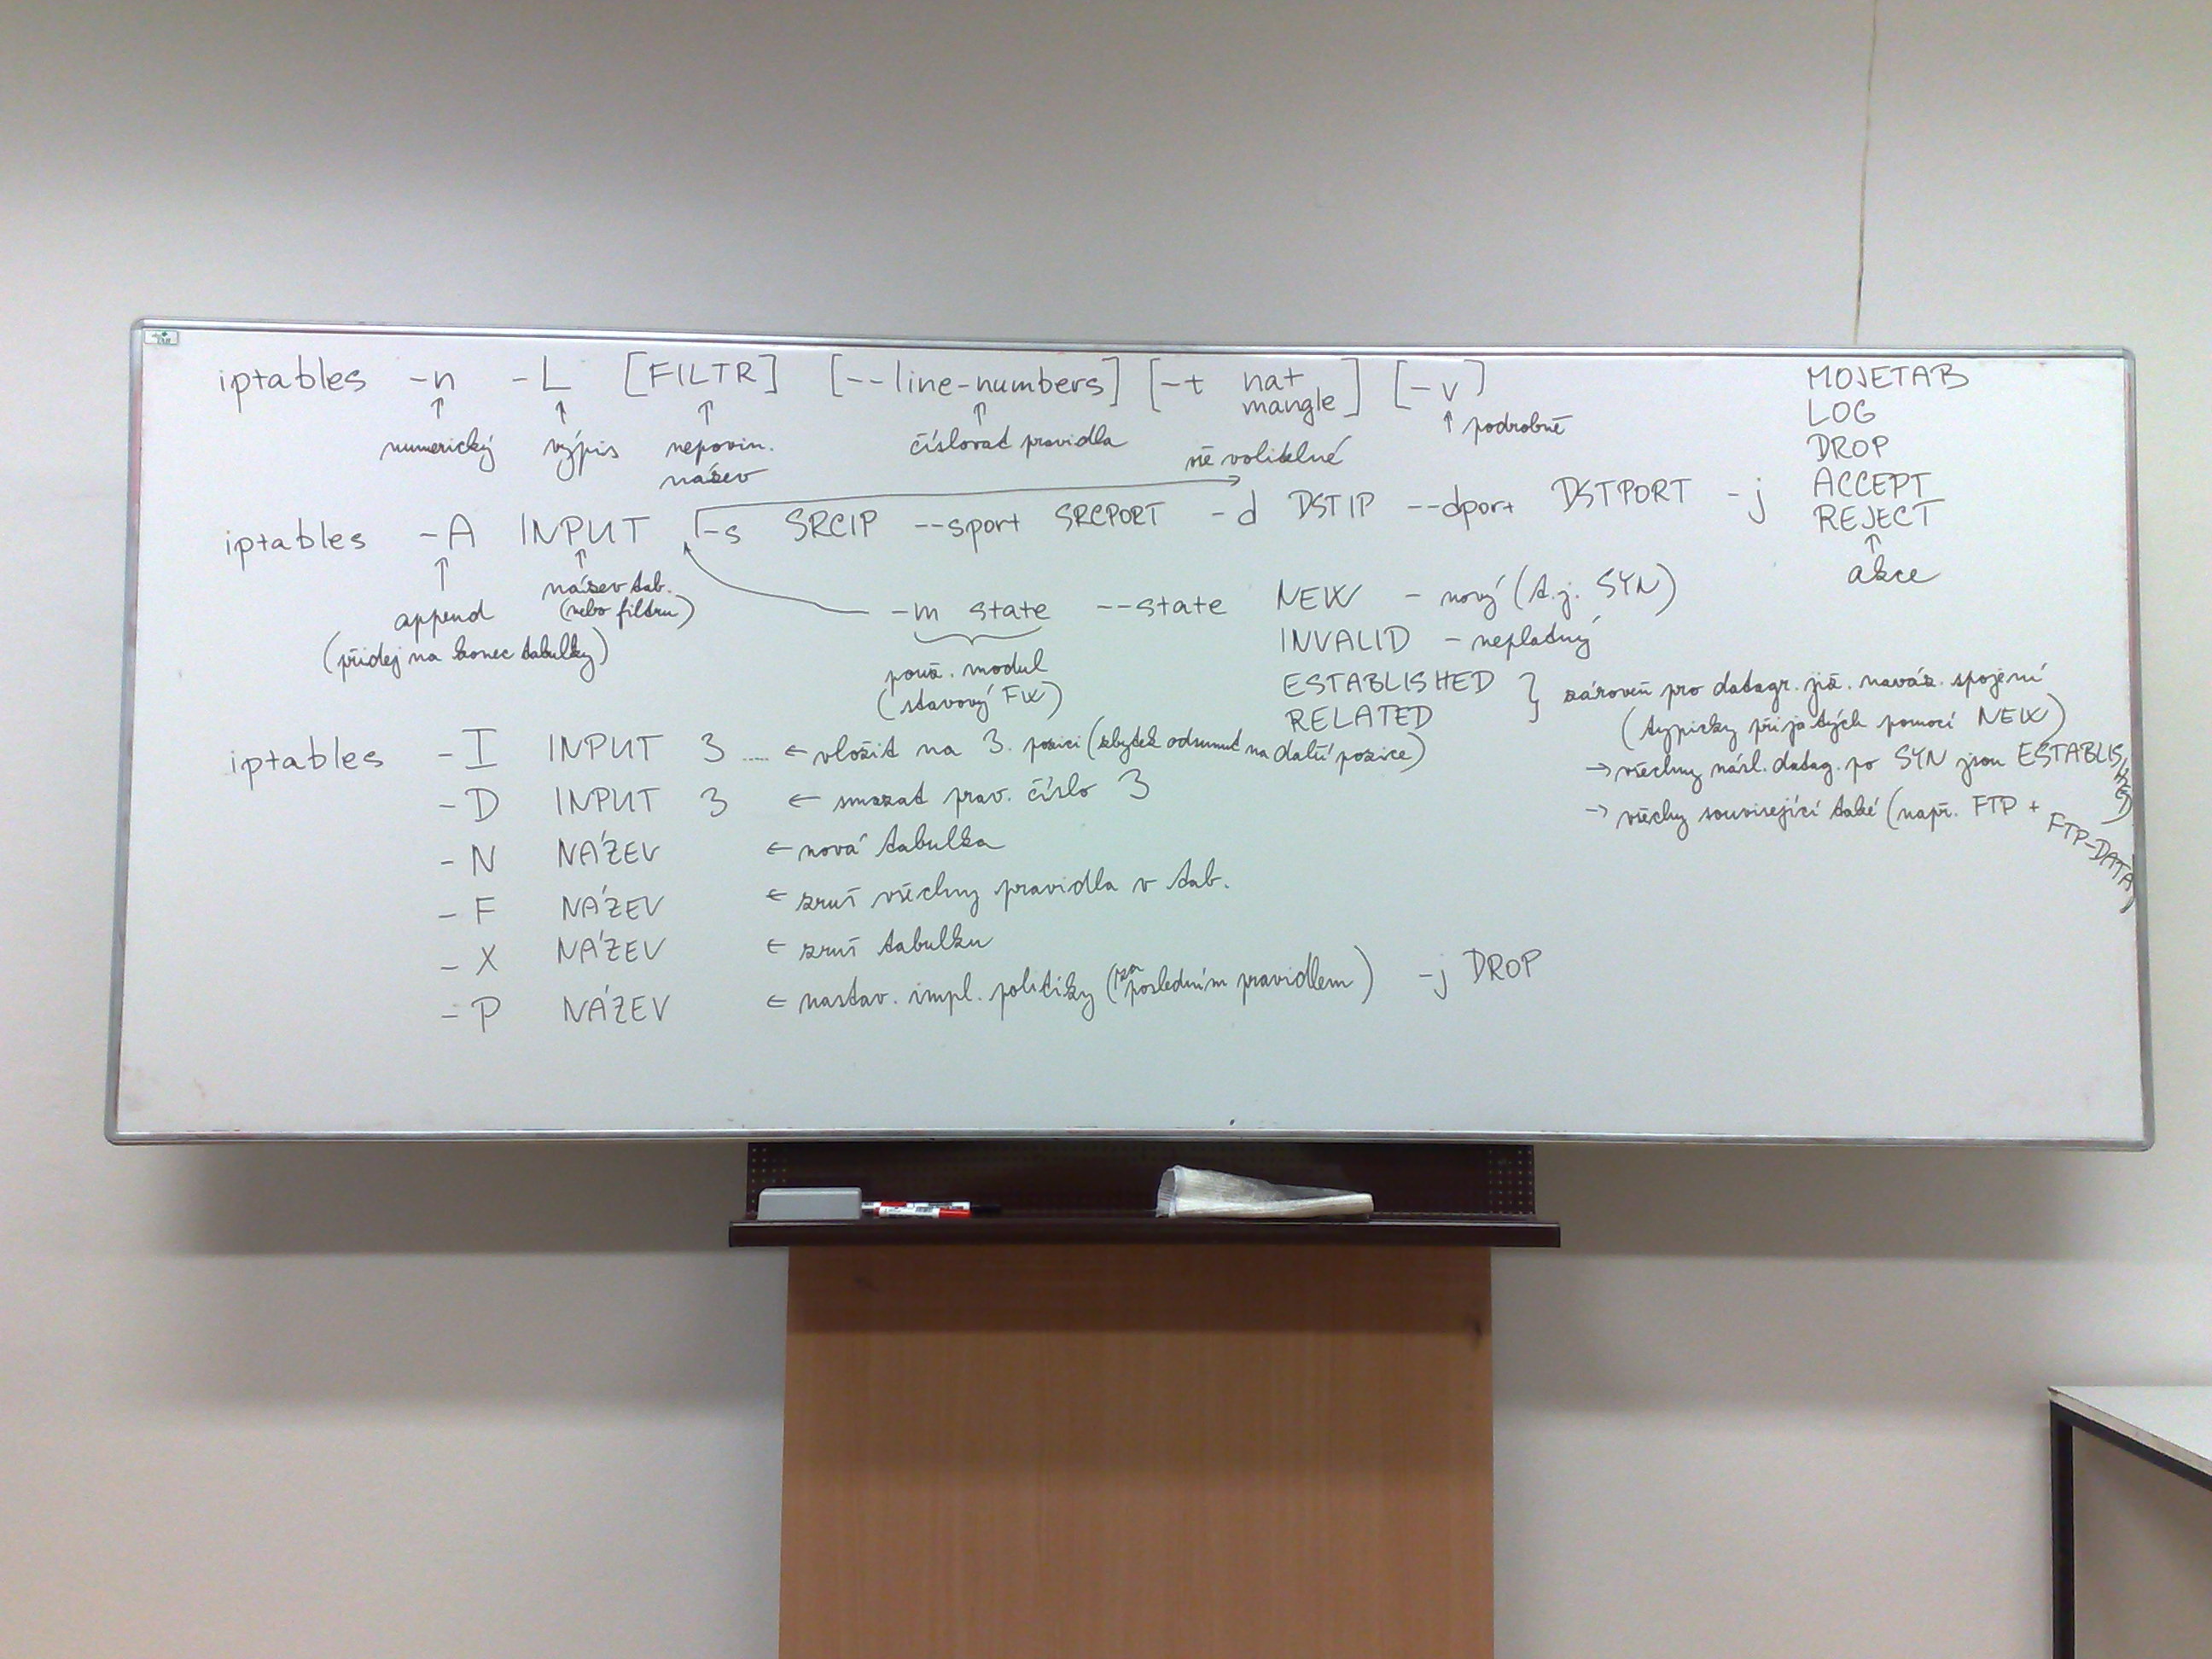 iptables -n -L [FILTR] [--line-numbers] [-t nat mangle] [-v]
↑ numerický ↑ výpis ↑ nepovin. název ↑ číslovat pravidla ↑ podrobně
vše volitelné
MOJETAB
LOG
DROP
ACCEPT
REJECT
↑
akce
iptables -A INPUT -s SRCIP --sport SRCPORT -d DSTIP --dport DSTPORT -j
↑ append
(přidej na konec tabulky)
↑ název tab.
(nebo filtru)
-m state --state NEW - nový (t.j. SYN)
použ. modul
(stavový FW)
INVALID - neplatný
ESTABLISHED
RELATED
} zároveň pro datagr. již. naváz. spojení
(typicky přijatých pomocí NEW)
→ všechny násl. datag. po SYN jsou ESTABLISHED
→ všechy související také (např. FTP + FTP-DATA)
iptables -I INPUT 3 ..... ← vložit na 3. pozici (zbytek odsunut na další pozice)
-D INPUT 3 ← smazat prav. číslo 3
-N NÁZEV ← nová tabulka
-F NÁZEV ← zruš všechny pravidla v tab.
-X NÁZEV ← zruš tabulku
-P NÁZEV ← nastav. impl. politiky (za posledním pravidlem) -j DROP